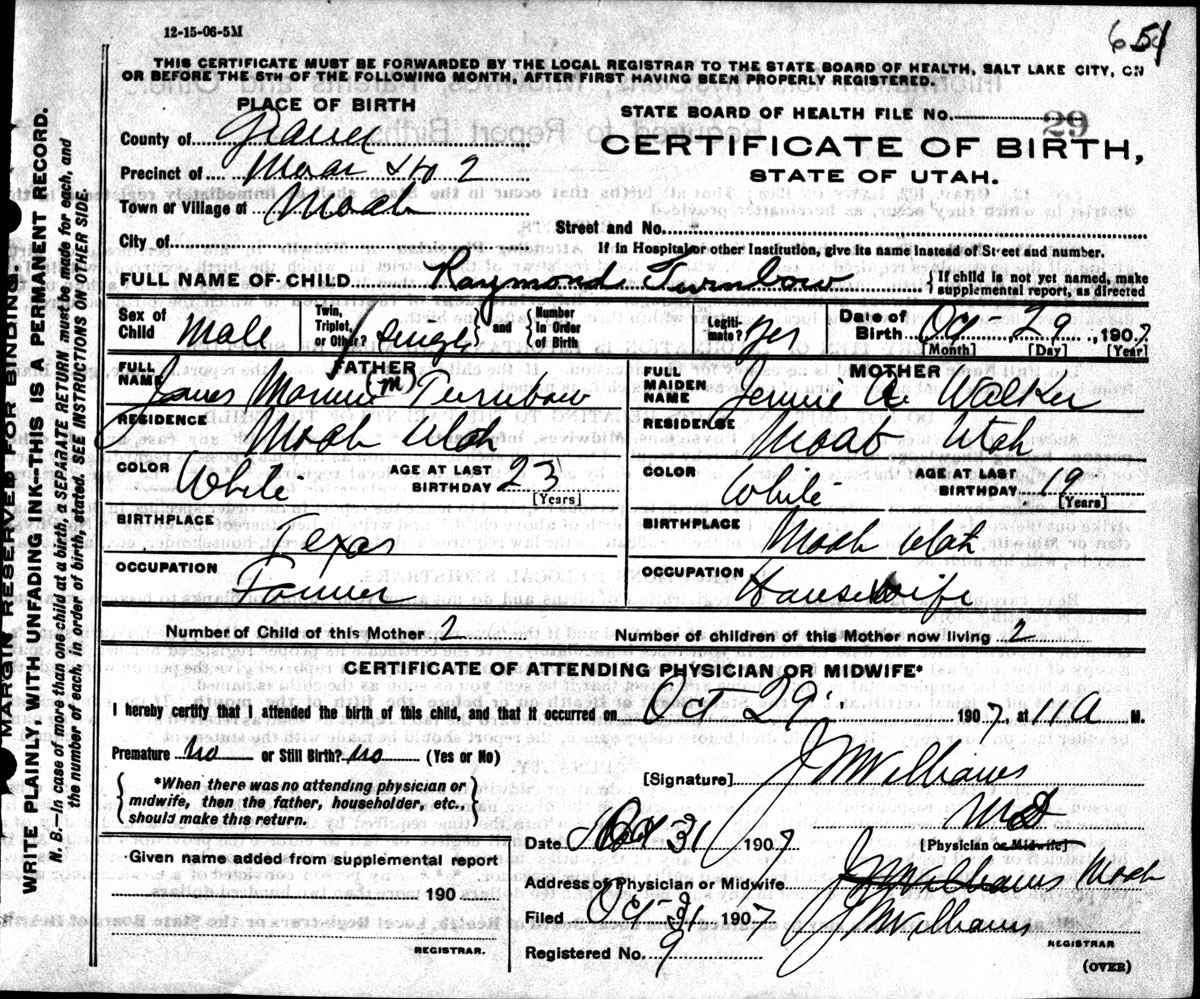 12-15-06-5M
651
THIS CERTIFICATE MUST BE FORWARDED BY THE LOCAL REGISTRAR TO THE STATE BOARD OF HEALTH, SALT LAKE CITY, ON
OR BEFORE THE 5TH OF THE FOLLOWING MONTH, AFTER FIRST HAVING BEEN PROPERLY REGISTERED.
MARGIN RESERVED FOR BINDING.
WRITE PLAINLY, WITH UNFADING INK—THIS IS A PERMANENT RECORD.
N. B. In case of more than one child at a birth, a SEPARATE RETURN must be made for each, and
the number of each, in order of birth, stated. SEE INSTRUCTIONS ON OTHER SIDE.
PLACE OF BIRTH
County of
Precinct of Moab No 2
Town or Village of Moab
City of
STATE BOARD OF HEALTH FILE NO. 29
CERTIFICATE OF BIRTH,
STATE OF UTAH.
Street and No.
If in Hospital or other Institution, give its name instead of Street and number.
FULL NAME OF CHILD Raymond Turnbow { If child is not yet named, make
supplemental report, as directed
Sex of Child Male Twin, Triplet, or Other? Single and Number in Order of Birth Legitimate? yes Date of Birth Oct- 29, 1907
[Month] [Day] [Year]
FATHER
FULL NAME James (m) Turnbow
RESIDENCE Moab Utah
COLOR White AGE AT LAST BIRTHDAY 23 [Years]
BIRTHPLACE Texas
OCCUPATION Farmer
MOTHER
FULL MAIDEN NAME Jennie A Walker
RESIDENCE Moab Utah
COLOR White AGE AT LAST BIRTHDAY 19 [Years]
BIRTHPLACE Moab Utah
OCCUPATION Housewife
Number of Child of this Mother 2 Number of children of this Mother now living 2
CERTIFICATE OF ATTENDING PHYSICIAN OR MIDWIFE*
I hereby certify that I attended the birth of this child, and that it occurred on Oct 29 1907, at 11 a M.
Premature no or Still Birth? no (Yes or No)
{ *When there was no attending physician or
midwife, then the father, householder, etc.,
should make this return. }
Given name added from supplemental report
190
REGISTRAR.
[Signature] J W Williams
MD
[Physician or Midwife]
Date Oct 31 1907
Address of Physician or Midwife J W Williams Moab
Filed Oct- 31 1907 J W Williams
REGISTRAR
Registered No. 9
(OVER)